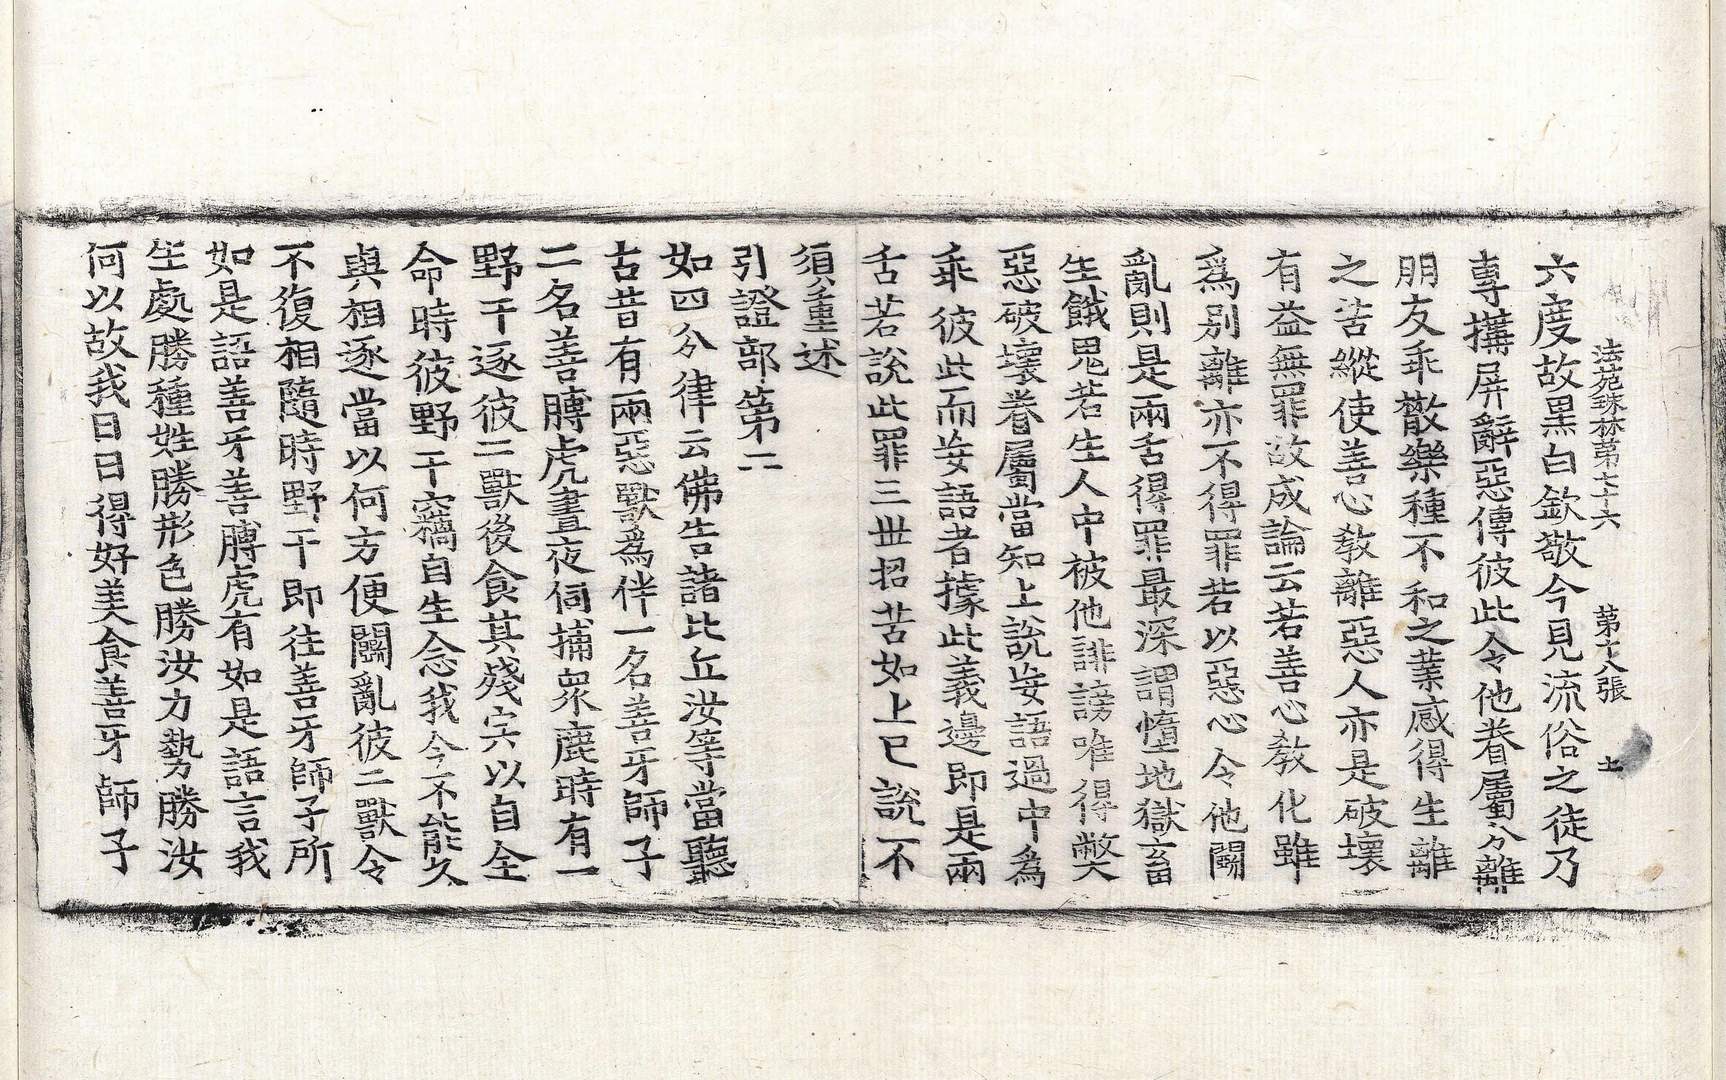 法苑珠林第七十六　第十八張　士
六度故黑白欽敬今見流俗之徒乃
專搆屏辭惡傳彼此令他眷屬分離
朋友乖散樂種不和之業感得生離
之苦縱使善心教離惡人亦是破壞
有益無罪故成論云若善心教化雖
爲別離亦不得罪若以惡心令他鬪
亂則是兩舌得罪最深謂墮地獄畜
生餓鬼若生人中被他誹謗唯得弊
惡破壞眷屬當知上說妄語過中爲
乖彼此而妄語者據此義邊即是兩
舌若說此罪三世招苦如上已說不
須重述
引證部第二
如四分律云佛告諸比丘汝等當聽
古昔有兩惡獸爲伴一名善牙師子
二名善膊虎晝夜伺捕衆鹿時有一
野干逐彼二獸後食其殘宍以自全
命時彼野干竊自生念我今不能久
與相逐當以何方便鬪亂彼二獸令
不復相隨時野干即往善牙師子所
如是語善牙善膊虎有如是語言我
生處勝種姓勝形色勝汝力勢勝汝
何以故我日日得好美食善牙師子